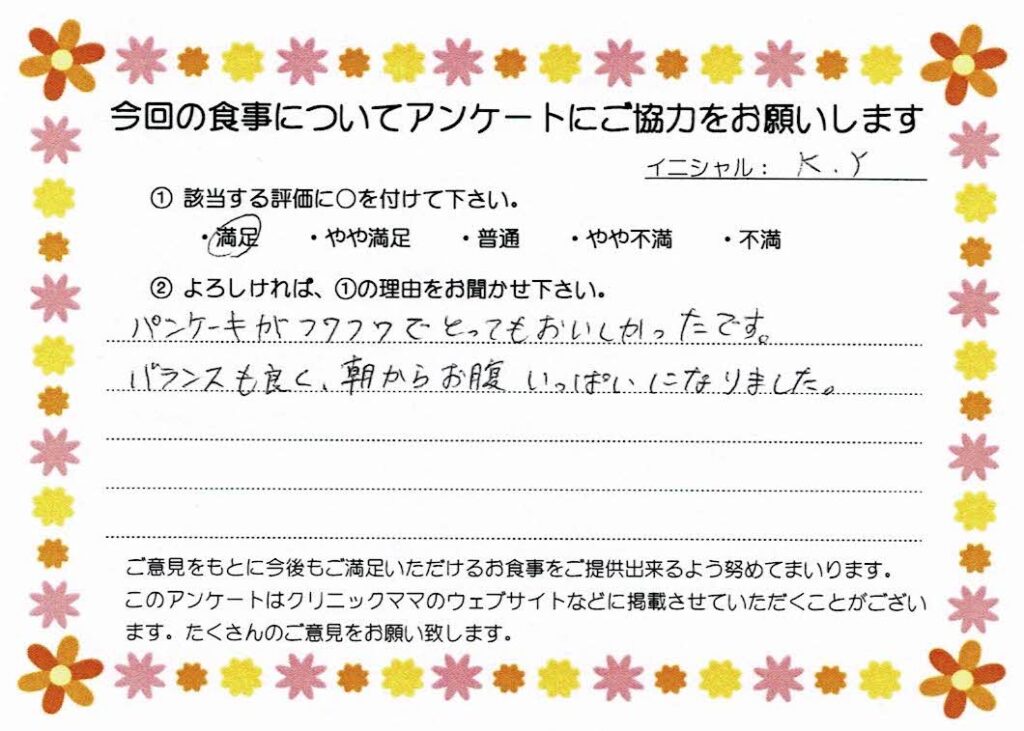 今回の食事についてアンケートにご協力をお願いします
イニシャル： K.Y
① 該当する評価に○を付けて下さい。
・満足 ・やや満足 ・普通 ・やや不満 ・不満
② よろしければ、①の理由をお聞かせ下さい。
パンケーキがフワフワでとってもおいしかったです。
バランスも良く、朝からお腹いっぱいになりました。
ご意見をもとに今後もご満足いただけるお食事をご提供出来るよう努めてまいります。
このアンケートはクリニックママのウェブサイトなどに掲載させていただくことがござい
ます。たくさんのご意見をお願い致します。